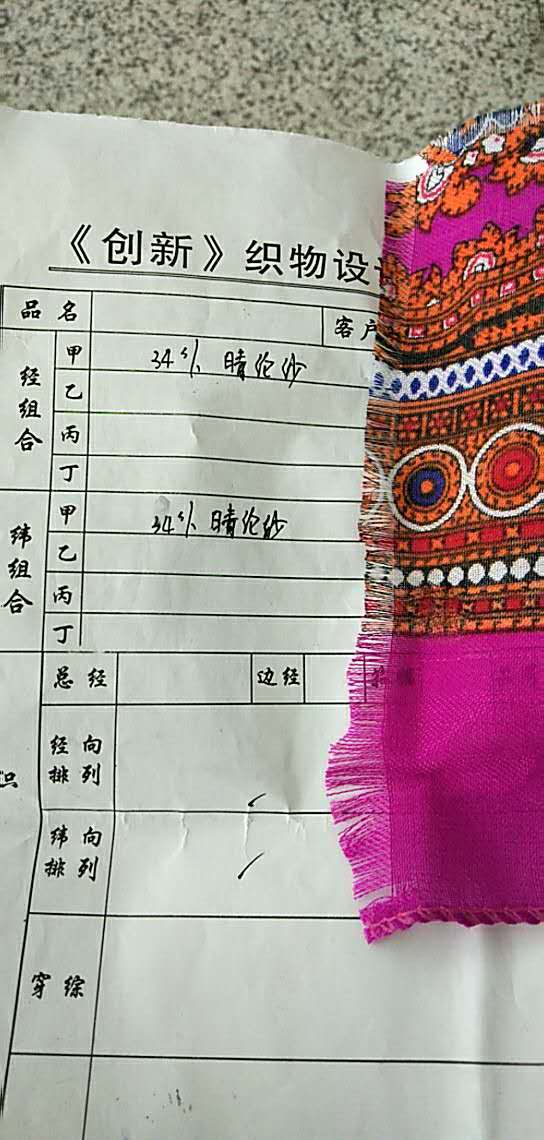 《创新》织物设
品名 客户
经组合 甲 34% 晴伦纱
乙
丙
丁
纬组合 甲 34% 晴伦纱
乙
丙
丁
总经 边经
经向排列
纬向排列
穿综